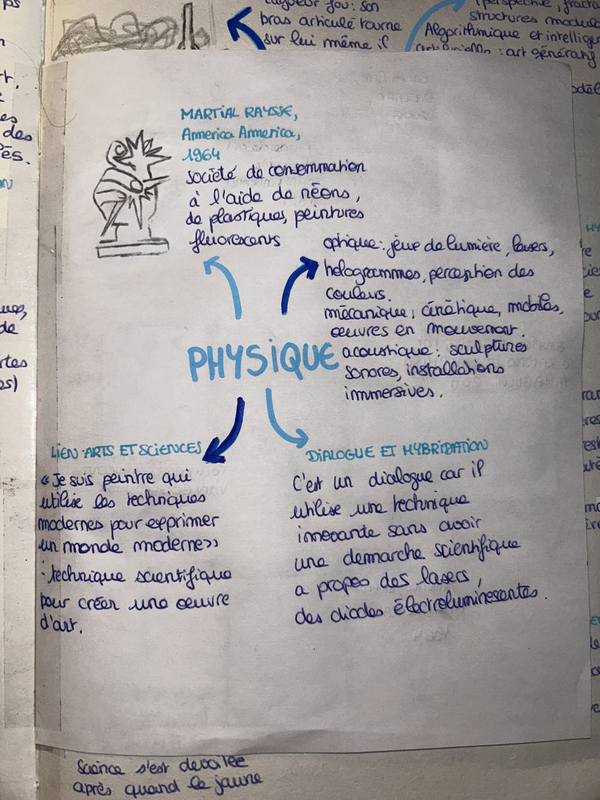 bras articulé tourne
sur lui même il
structures modul
Algorithmique et intellige
: art génératif
MARTIAL RAYSSE,
America America,
1964
société de consommation
à l'aide de néons,
de plastiques, peintures
fluorescents
optique : jeux de lumière, lasers,
hologrammes, perception des
couleurs.
mécanique : cinétique, mobiles,
œuvres en mouvement.
PHYSIQUE
acoustique : sculptures
sonores, installations
immersives.
LIEN ARTS ET SCIENCES
« Je suis peintre qui
utilise les techniques
modernes pour exprimer
un monde moderne »
: technique scientifique
pour créer une œuvre
d'art.
DIALOGUE ET HYBRIDATION
C'est un dialogue car il
utilise une technique
innovante sans avoir
une demarche scientifique
a propos des lasers,
des diodes électroluminesantes.
Science s'est dévoilée
après quand le jaune